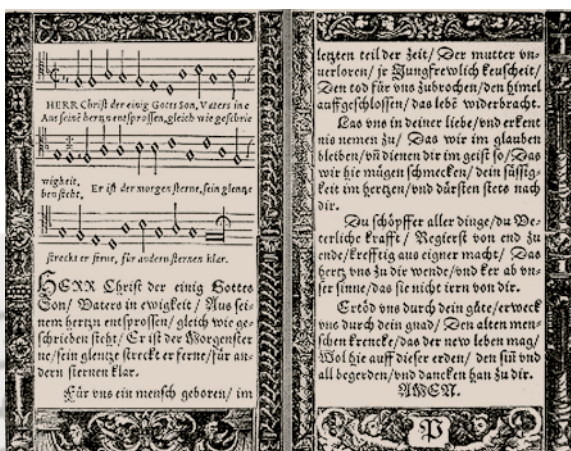 HERR Chriſt der einig Gotts Son, Vaters in e
Aus ſeinē hertzn entſproſſen, gleich wie geſchrie
wigheit,
ben ſteht,
Er iſt der morgen ſterne, ſein glentze
ſtreckt er ferne, für andern ſternen klar.
HERR Chriſt der einig Gottes
Son/ Vaters in ewigkeit/ Aus ſei-
nem hertzn entſproſſen/ gleich wie ge-
ſchrieben ſteht/ Er iſt der Morgenſter
ne/ ſein glentze ſtreckt er ferne/ für an-
dern ſternen klar.
Für vns ein menſch geboren/ im
letzten teil der zeit/ Der mutter vn-
uerloren/ jr Jungfrewlich keuſcheit/
Den tod für vns zubrochen/ den himel
auffgeſchloſſen/ das lebē widerbracht.
Las vns in deiner liebe/ vnd erkent
nis nemen zu/ Das wir im glauben
bleiben/ vn̄ dienen dir im geiſt ſo/ Das
wir hie mügen ſchmecken/ dein ſüſſig-
keit im hertzen/ vnd dürſten ſtets nach
dir.
Du ſchöpffer aller dinge/ du Ve-
terliche krafft/ Regierſt von end zu
ende/ krefftig aus eigner macht/ Das
hertz vns zu dir wende/ vnd ker ab vn-
ſer ſinne/ das ſie nicht irrn von dir.
Ertöd vns durch dein güte/ erweck
vns durch dein gnad/ Den alten men-
ſchen krencke/ das der new leben mag/
Wol hie auff dieſer erden/ den ſiñ vnd
all begerden/ vnd dancken han zu dir.
AMEN.
P